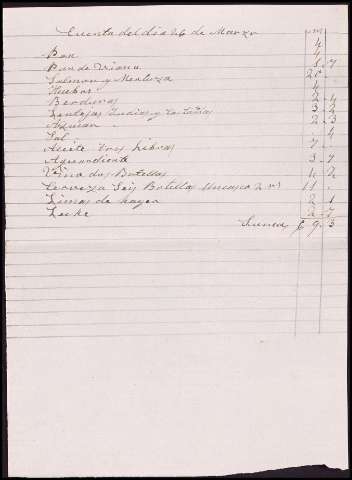 Cuenta del dia 26 de Marzo
Pan 4
Pan de Viana 1 7
Salmon y Merluza 20
Huebos 4
Berduras 2 4
Lentejas Judias y 3 4
Azucar 2 3
Sal 4
Aceite tres libras 7
Aguardiente 3 7
Vino dos Botellas 1 2
Cerveza Seis Botellas 2 rs 11
Limas de 2 1
Leche 2 7
Suma 6 9 3